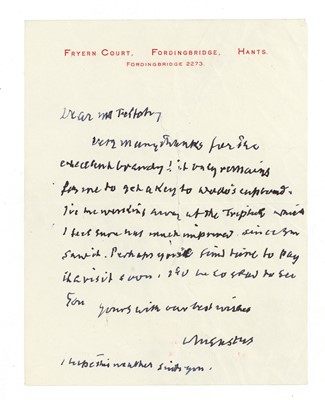 FRYERN COURT, FORDINGBRIDGE, HANTS.
FORDINGBRIDGE 2273.
Dear Mr
Very many thanks for the
excellent brandy! it only remains
for me to get a key to cupboard.
I've been working away at the Triptych which
I feel sure has much improved since you
saw it. Perhaps you'll find time to pay
it a visit soon. be so glad to see
you
yours with our best wishes
Augustus
I hope this weather suits you.